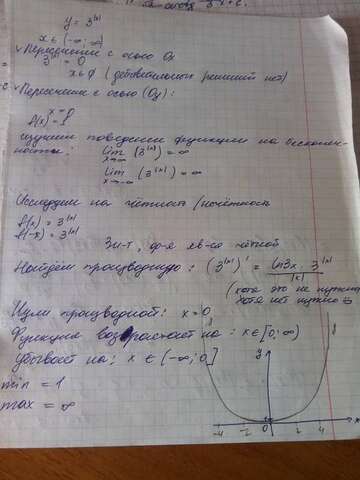 y = 3^|x|
x ∈ (-∞; ∞)
Пересечение с осью Ox
3^|x| = 0
x ∈ ∅ (действительных решений нет)
Пересечение с осью (Oy):
x = 0
f(x) = 1
поведение функции на бесконеч-
ности:
lim x→∞ (3^|x|) = ∞
lim x→-∞ (3^|x|) = ∞
Исследуем на чётность/нечётность
f(x) = 3^|x|
f(-x) = 3^|x|
Зн-т, ф-я яв-ся чётной
Найдём производную: (3^|x|)' = ln3x · 3^|x| / |x|
(хотя это не нужно
хотя нет нужно
Нули производной: x = 0
Функция возрастает на: x ∈ [0; ∞)
Убывает на: x ∈ (-∞; 0]
min = 1
max = ∞
y
-4 -2 0 2 4 x